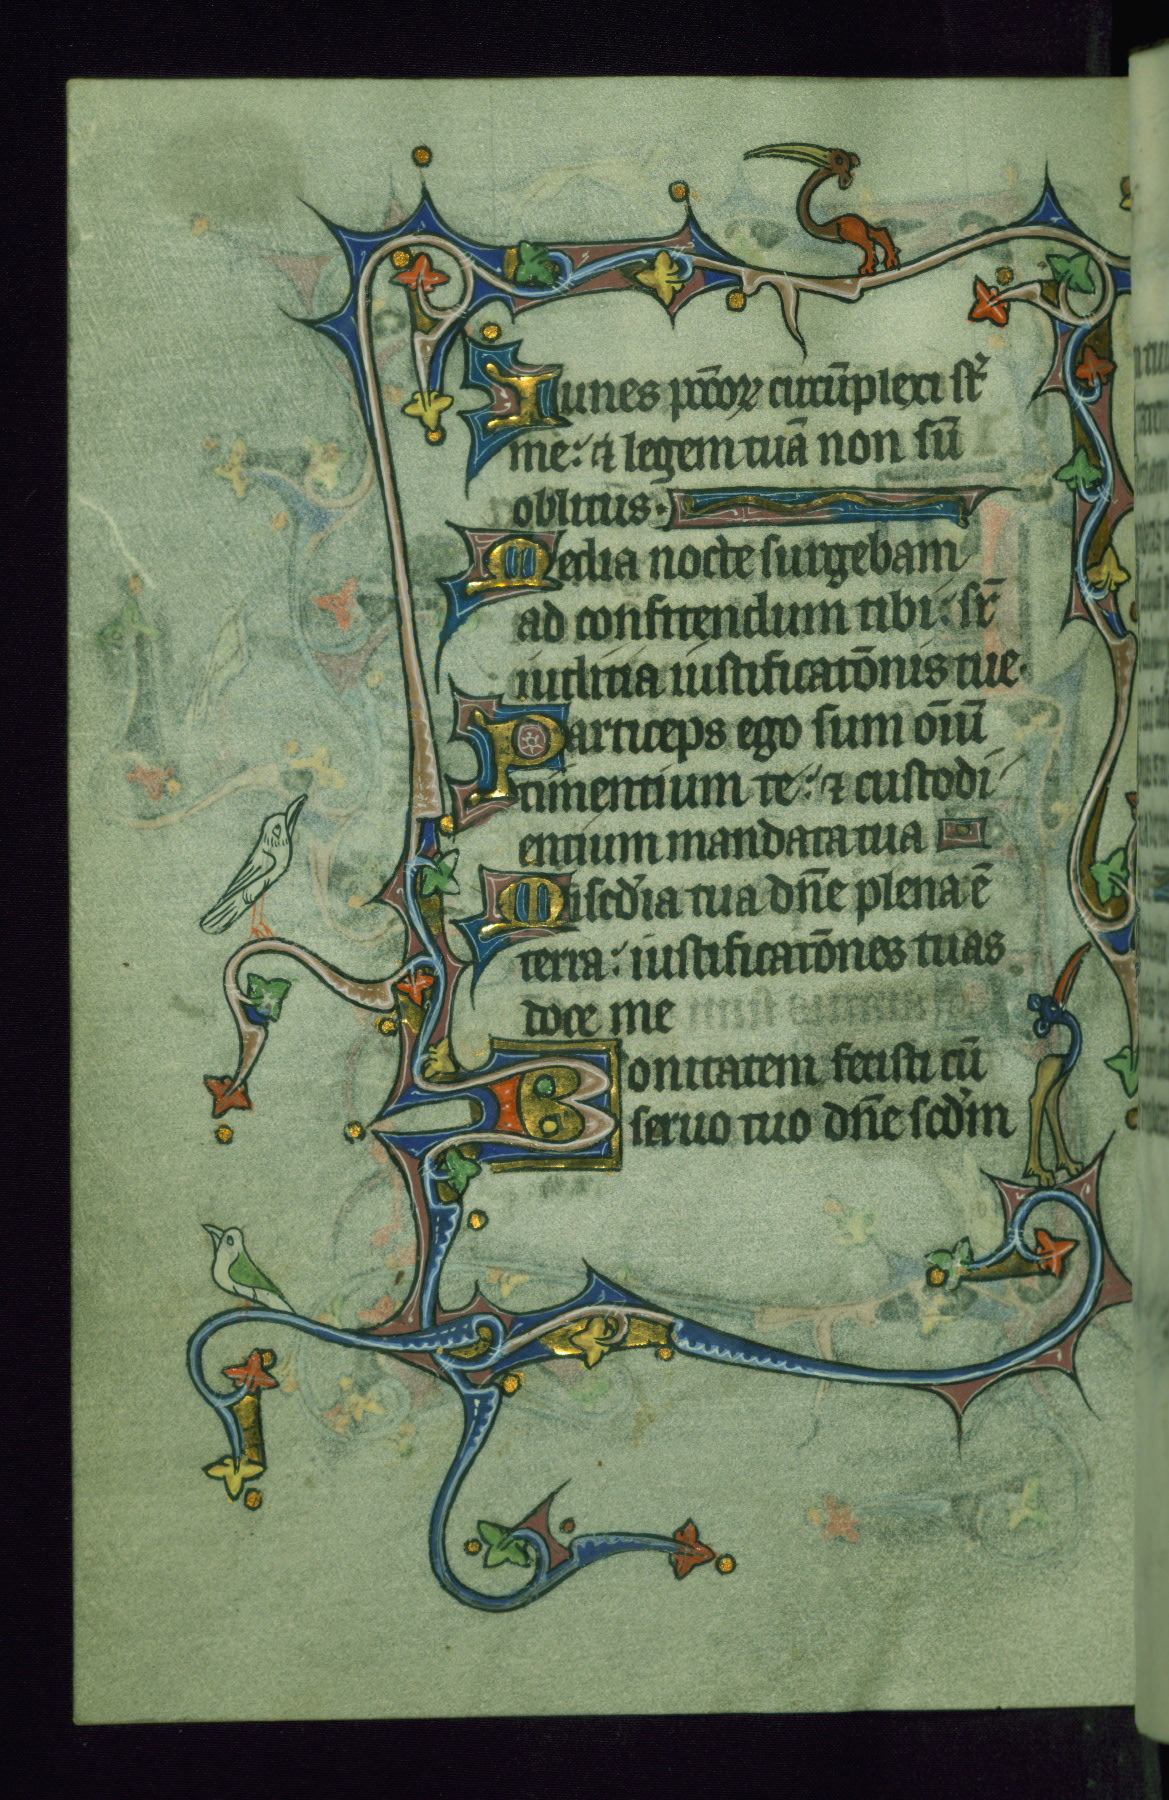 Funes pccōꝝ circūplexi sr̄
me: ⁊ legem tuā non sū
oblitus.
Media nocte surgebam
ad confitendum tibi: sr̄
iudicia iustificatōnis tue.
Particeps ego sum oīū
timentium te: ⁊ custodi
entium mandata tua
Misc̄dia tua dn̄e plena ē
terra: iustificatōnes tuas
doce me
Bonitatem fecisti cū
seruo tuo dn̄e scd̄m